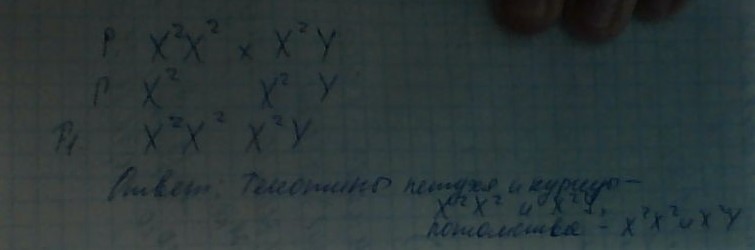 P X²X² x X²Y
Г X² X² Y
F₁ X²X² X²Y
Ответ: Генотипы петуха и курицы –
X²X² и X²Y,
потомства – X²X² и X²Y